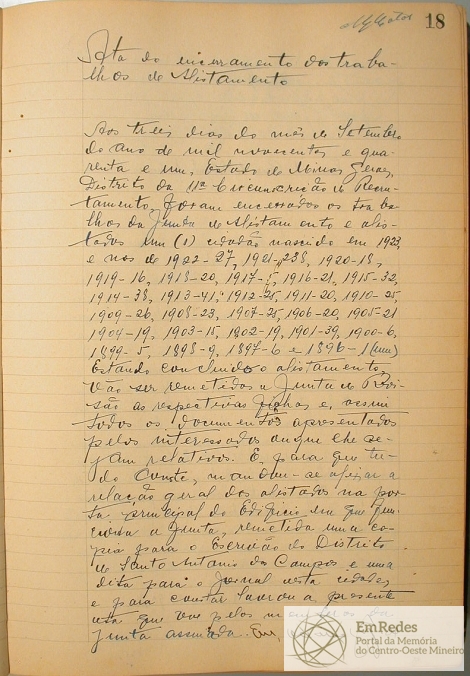 18
Ata do encerramento dos traba-
lhos de Alistamento
Aos treis dias do mês de Setembro
do ano de mil novecentos e qua
renta e um, Estado de Minas Gerais,
Distrito da 11ª Circunscrição de Recru-
tamento, foram encerrados os traba
lhos da Junta de Alistamento e alis-
tados um (1) cidadão nascido em 1923
e nos de 1922-27, 1921-238, 1920-18,
1919-16, 1918-20, 1917-5, 1916-21, 1915-32,
1914-38, 1913-41, 1912-25, 1911-20, 1910-25,
1909-26, 1908-23, 1907-25, 1906-20, 1905-21
1904-19, 1903-15, 1902-19, 1901-39, 1900-6,
1899-5, 1898-9, 1897-6 e 1896-1 (um)
Estando concluido o alistamento,
vão ser remetidos a Junta de Revi-
são as respectivas fichas e, assim
todos os documentos apresentados
pelos interessados ou que lhe se-
jam relativos. E, para que tu-
do conste, mandou-se afixar a
relação geral dos alistados na por
ta principal do Edificio em que fun
ciona a Junta, remetida uma co-
pia para o Escrivão do Distrito
de Santo Antonio dos Campos e uma
dita para o Jornal desta cidade,
e para constar lavrou a presente
ata que vae pelos membros da
Junta assinada. Eu,
EmRedes
Portal da Memória
do Centro-Oeste Mineiro